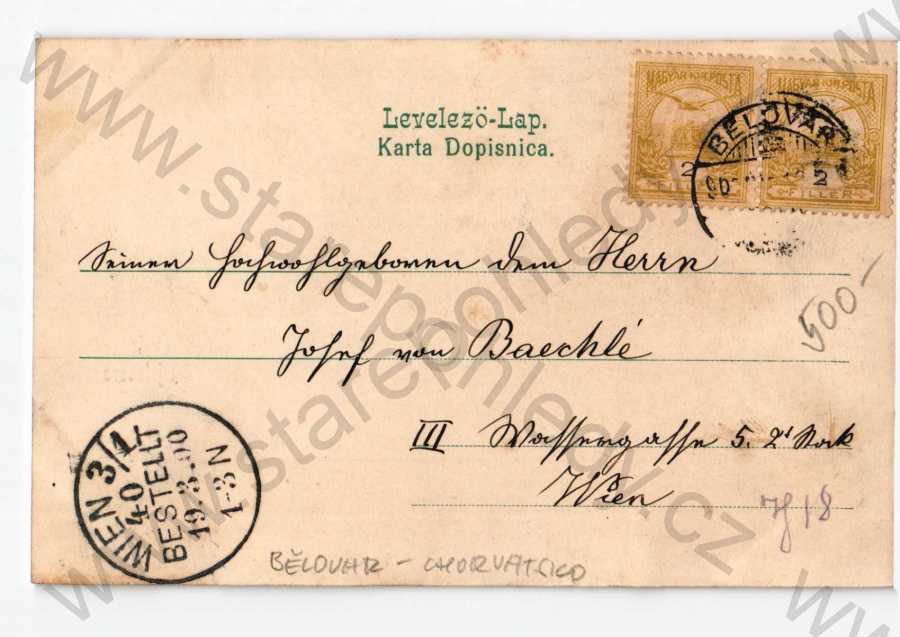 MAGYAR KIR. POSTA
MAGYAR KIR. POSTA
2
2
FILLÉR
FILLÉR
BELOVÁR
Levelező-Lap.
Karta Dopisnica.
Seiner Hochwohlgeboren dem Herrn
Josef von Baechlé
III Wassergasse 5. 2t Stock
Wien
500-
WIEN 3/1
40
BESTELLT
19.3.00
1-3N
BĚLOVAR - CHORVATSKO
www.starepohledy.cz
www.starepohledy.cz